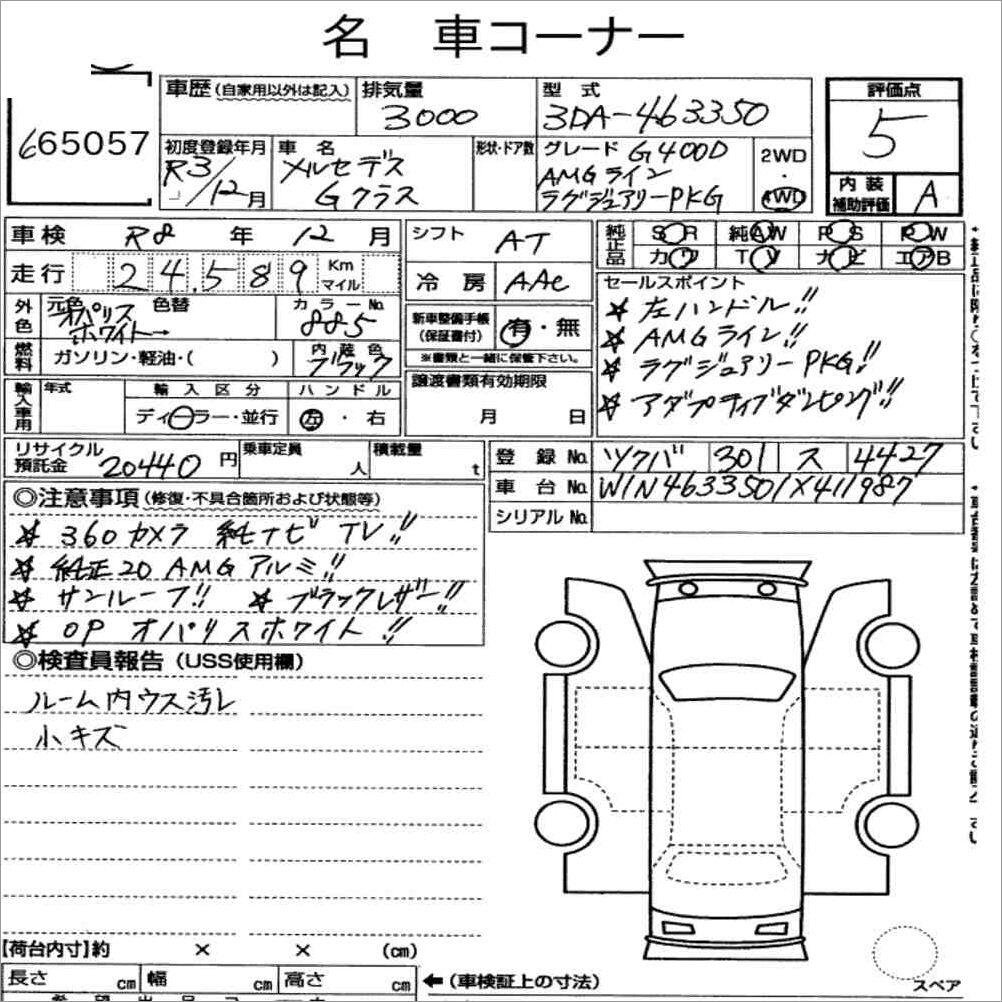 名 車コーナー
665057
車歴(自家用以外は記入) 排気量 型式 評価点
3000 3DA-463350 5
初度登録年月 車名 形状・ドア数 グレード G400D 2WD
R3/12月 メルセデス Gクラス AMGライン ラグジュアリーPKG ・ 4WD
内装補助評価 A
車検 R8 年 12 月 シフト AT 純正品 SR 純AW PS PW
カワ TV ナビ エアB
走行 24,589 Km マイル 冷房 AAC
セールスポイント
☆ 左ハンドル!!
☆ AMGライン!!
☆ ラグジュアリーPKG!!
☆ アダプティブダンピング!!
外色 元色 オパリスホワイト→ 色替 カラーNo. 885
新車整備手帳(保証書付) 有・無
※書類と一緒に保管下さい。
燃料 ガソリン・軽油・( ) 内装色 ブラック
譲渡書類有効期限
月 日
輸入車用 年式 輸入区分 ハンドル
ディーラー・並行 左・右
リサイクル預託金 20440円 乗車定員 人 積載量 t
登録No. ツクバ 301 ス 4427
車台No. W1N4633501X411987
シリアルNo.
◎注意事項(修復・不具合箇所および状態等)
☆ 360カメラ 純ナビ TV!!
☆ 純正20 AMGアルミ!!
☆ サンルーフ!! ☆ ブラックレザー!!
☆ OP オパリスホワイト!!
◎検査員報告(USS使用欄)
ルーム内ウス汚レ
小キズ
【荷台内寸】約 × × (cm)
長さ cm 幅 cm 高さ cm ←(車検証上の寸法)
スペア